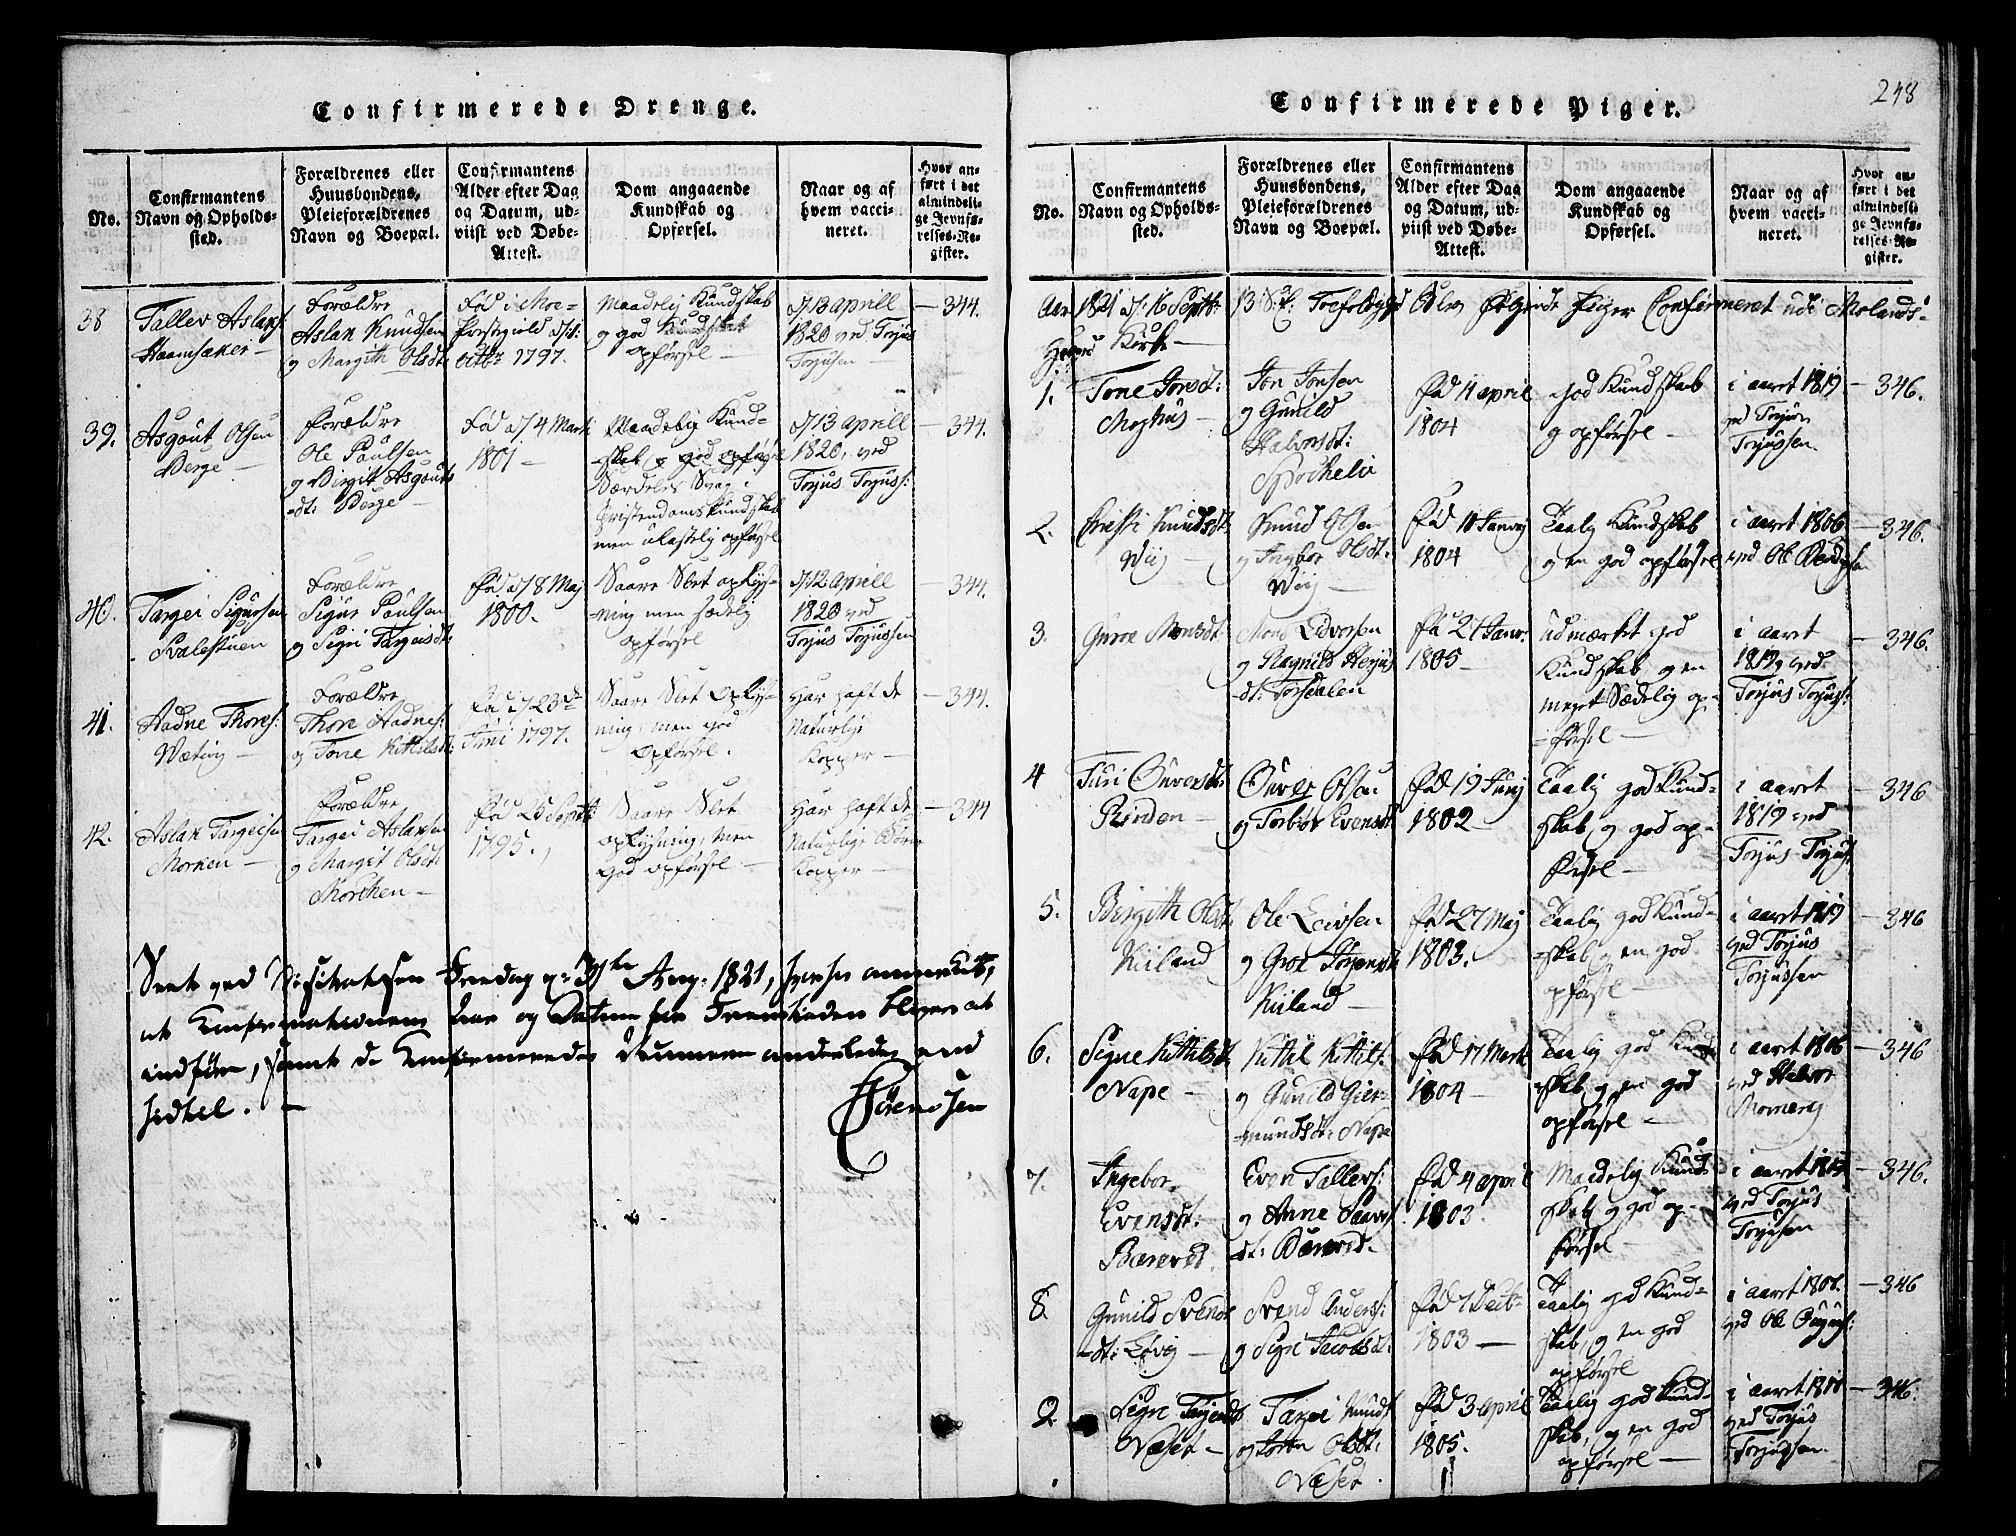 Confirmerede Drenge.
No.
Confirmantens
Navn og Opholds-
sted.
Forældrenes eller
Huusbondens,
Pleieforældrenes
Navn og Boepæl.
Confirmantens
Alder efter Dag
og Datum, ud-
viist ved Døbe-
Attest.
Dom angaaende
Kundskab og
Opførsel.
Naar og af
hvem vacci-
neret.
Hvor an-
ført i det
almindeli-
ge Jevnfø-
relses-Re-
gister.
38
Tallev Aslaks:
Haamsaker —
Forældre
Aslak Knudsen
og Margith Olsdt:
Octbr 1797.
Maadelig Kundskab
og god
opførsel —
d: 13 aprill
1820 ved Torjus
Torjusen
— 344.
39.
Asgout Olsen
Berge —
Forældre
Ole Paulsen
og Birgit Asgouts
dt: Berge —
Fød d 4 Marti
1801 —
Maadelig Kund-
skab, og god opførsel
Særdeles Svag i
Cristendomskundskab
men ulastelig opførsel
d: 13 aprill
1820, ved
Torjus Torjuss:
— 344.
40.
Targei Sigursen
Svalestuen
Forældre
Sigur Paulsen
og Sigri Targeisdt:
Fød d 8 Maj
1800.
Saare Slet oplys-
ning men sædelig
opførsel
d: 12 aprill
1820 ved
Torjus Torjussen
— 344.
41.
Aadne Thores:
Forældre
Thore Aadnes:
og Tone Kittilsdt:
Fød d 23de
Juni 1797.
Saare Slet Oplys-
ning, men god
Opførsel.
Har haft de
Naturlige
Kopper —
— 344.
42.
Aslak Targeisen
Morken —
Forældre
Targei Aslaksen
og Marget Olsdt:
Morchen —
Fød 25 Septb:
1795.
Saare Slet
oplysning, Men
God opførsel —
Har haft de
Naturlige Børne
Kopper —
— 344
Seet ved Visitatsen Fredag d: 31te Aug: 1821, hvorhos anmerkes,
at Confirmationens Aar og Datum for Fremtiden bliver at
indføre, samt de Confirmeredes Nummere anderledes end
sidstel. —
Sørenssen
Confirmerede Piger.
248
No.
Confirmantens
Navn og Opholds-
sted.
Forældrenes eller
Huusbondens,
Pleieforældrenes
Navn og Boepæl.
Confirmantens
Alder efter Dag
og Datum, ud-
viist ved Døbe-
Attest.
Dom angaaende
Kundskab og
Opførsel.
Naar og af
hvem vacci-
neret.
Hvor an-
ført i det
almindeli-
ge Jevnfø-
relses-Re-
gister.
Aar 1821 d: 16 Septbr: 13: S: Ef: Trefoldighed Følgende Piger Confirmeret udi Molands-
Kirke —
1.
Tone Jonsdt:
Moghus —
Jon Jonsen
og Gunild
Halvorsdt:
Fød 11 april
1804
God Kundskab
og opførsel —
i aaret 1819
ved Torjus
Torjussen
— 346.
2.
Knudsdt:
Wiig —
Knud Olsen
og Ingebor Olsdt:
Wiig —
Fød 10 Januarj
1804
Taalig Kundskab
og en god opførsel
i aaret 1806
ved Ole
— 346.
3.
Guroe Monsdt:
Mons Edvorsen
og Ragnild Herjus
dt: Torsdalen
Fød 21 Janv:
1805 —
Udmærket god
Kundskab og en
meget Sædelig op-
førsel —
i aaret
1819 ved
Torjus Torjuss:
— 346.
4
Turi Ouversdt:
Rinden —
Ouver Olsen
og Torbør Evensdt:
Fød 19 Junj
1802 —
Taalig god Kund-
skab, og god op-
førsel —
i aaret
1819 ved
Torjus Torjus:
— 346
5.
Birgith Olsdt:
Kiiland
Ole Leivsen
og Groe
Kiiland —
Fød 27 Maj
1803.
Taalig god Kund-
skab, og en god
opførsel —
i aaret 1819
ved Torjus
Torjussen
— 346
6.
Signe Kittilsdt:
Nape —
Kittil Kittils:
og Gunild Gier-
mundsdt: Nape
Fød 17 Marti
1804 —
Taalig god Kund
skab, og en god
opførsel —
i aaret 1806
ved Halvor
— 346
7.
Ingebor
Evensdt:
Bærevd.
Even Tallevs:
og Anne Saaves
dt:
Fød 4 april
1803.
Maadelig Kund
skab og god op-
førsel —
i aaret
ved Torjus
Torjusen
— 346.
8.
Gunild Svends
dt: Løvig —
Svend Anders:
og Signe Jacobsdt:
Fød 7 Decbr
1803 —
Taalig god Kund-
skab, og en god
opførsel
i aaret
ved Ole
— 346
9
Næset —
Targei Knuds:
og Olsdt:
Næset.
Fød 3 april
1805.
Taalig god Kund-
skab, og en god
opførsel —
i aaret
ved Torjus
Torjussen.
— 346.